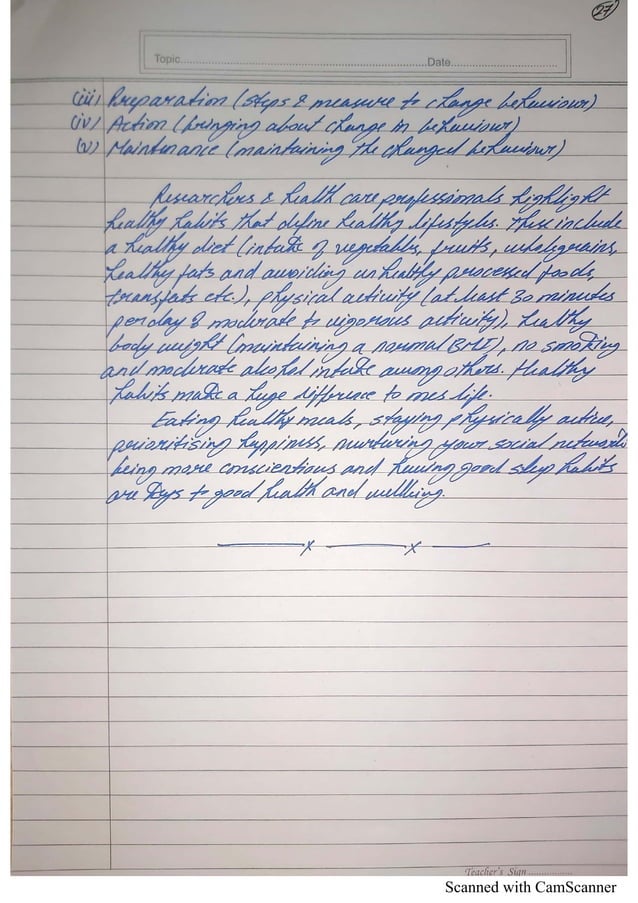 27
Topic.......................................................................Date...............................
(iii) Preparation (steps & measure to change behaviour)
(iv) Action (bringing about change in behaviour)
(v) Maintenance (maintaining the changed behaviour)
Researchers & health care professionals highlight
healthy habits that define healthy lifestyles. These include
a healthy diet (intake of vegetables, fruits, wholegrains,
healthy fats and avoiding unhealthy processed foods,
transfats etc.), physical activity (at least 30 minutes
per day of moderate to vigorous activity), healthy
body weight (maintaining a normal BMI), no smoking
and moderate alcohol intake among others. Healthy
habits make a huge difference to ones life.
Eating healthy meals, staying physically active,
prioritising happiness, nurturing your social network
being more conscientious and having good sleep habits
are keys to good health and wellbeing.
x x
Teacher's Sign ..................
Scanned with CamScanner